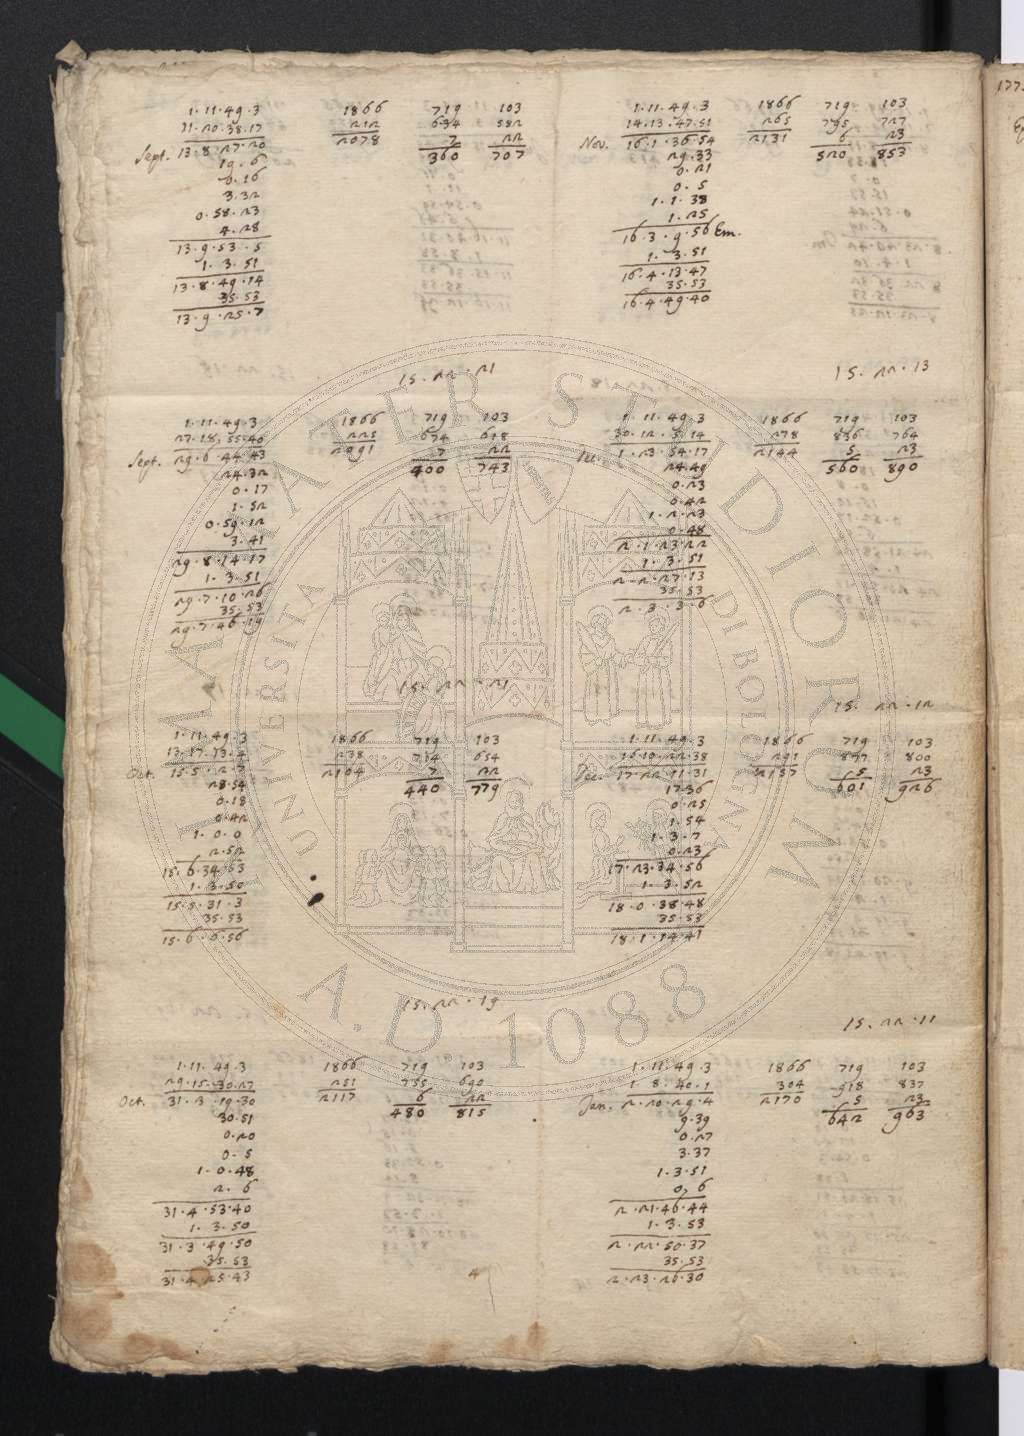 1·11·49·3 1866 719 103
11·20·38·17 212 634 582
Sept. 13·8·27·20 2078 7 22
19·6 360 707
0·16
3·32
0·58·23
4·28
13·9·53·5
1·3·51
13·8·49·14
35·53
13·9·25·7
15·22·21
1·11·49·3 1866 719 103
27·18·55·40 225 674 618
Sept. 29·6·44·43 2091 7 22
24·32 400 743
0·17
1·52
0·59·12
3·41
29·8·14·17
1·3·51
29·7·10·26
35·53
29·7·46·19
15·22·21
1·11·49·3 1866 719 103
13·17·13·4 238 714 654
Oct. 15·5·2·7 2104 7 22
28·54 440 779
0·18
0·42
1·0·0
2·52
15·6·34·53
1·3·50
15·5·31·3
35·53
15·6·6·56
15·22·19
1·11·49·3 1866 719 103
29·15·30·27 251 755 690
Oct. 31·3·19·30 2117 6 22
30·51 480 815
0·20
0·5
1·0·48
2·6
31·4·53·40
1·3·50
31·3·49·50
35·53
31·4·25·43
1·11·49·3 1866 719 103
14·13·47·51 265 795 727
Nov. 16·1·36·54 2131 6 23
29·33 520 853
0·21
0·5
1·1·38
1·25
16·3·9·56 Em.
1·3·51
16·4·13·47
35·53
16·4·49·40
15·22·13
1·11·49·3 1866 719 103
30·12·5·14 278 836 764
Dec. 1·23·54·17 2144 5 23
24·49 560 890
0·23
0·42
1·2·23
0·48
2·1·23·22
1·3·51
2·2·27·13
35·53
2·3·3·6
15·22·12
1·11·49·3 1866 719 103
16·10·22·38 291 877 800
Dec. 17·22·11·31 2157 5 23
17·36 601 926
0·25
1·54
1·3·7
0·23
17·23·34·56
1·3·52
18·0·38·48
35·53
18·1·14·41
15·22·11
1·11·49·3 1866 719 103
1·8·40·1 304 918 837
Jan. 2·20·29·4 2170 5 23
9·39 642 963
0·27
3·37
1·3·51
0·6
2·21·46·44
1·3·53
2·22·50·37
35·53
2·23·26·30
ALMA MATER STUDIORUM
UNIVERSITA DI BOLOGNA
A.D. 1088